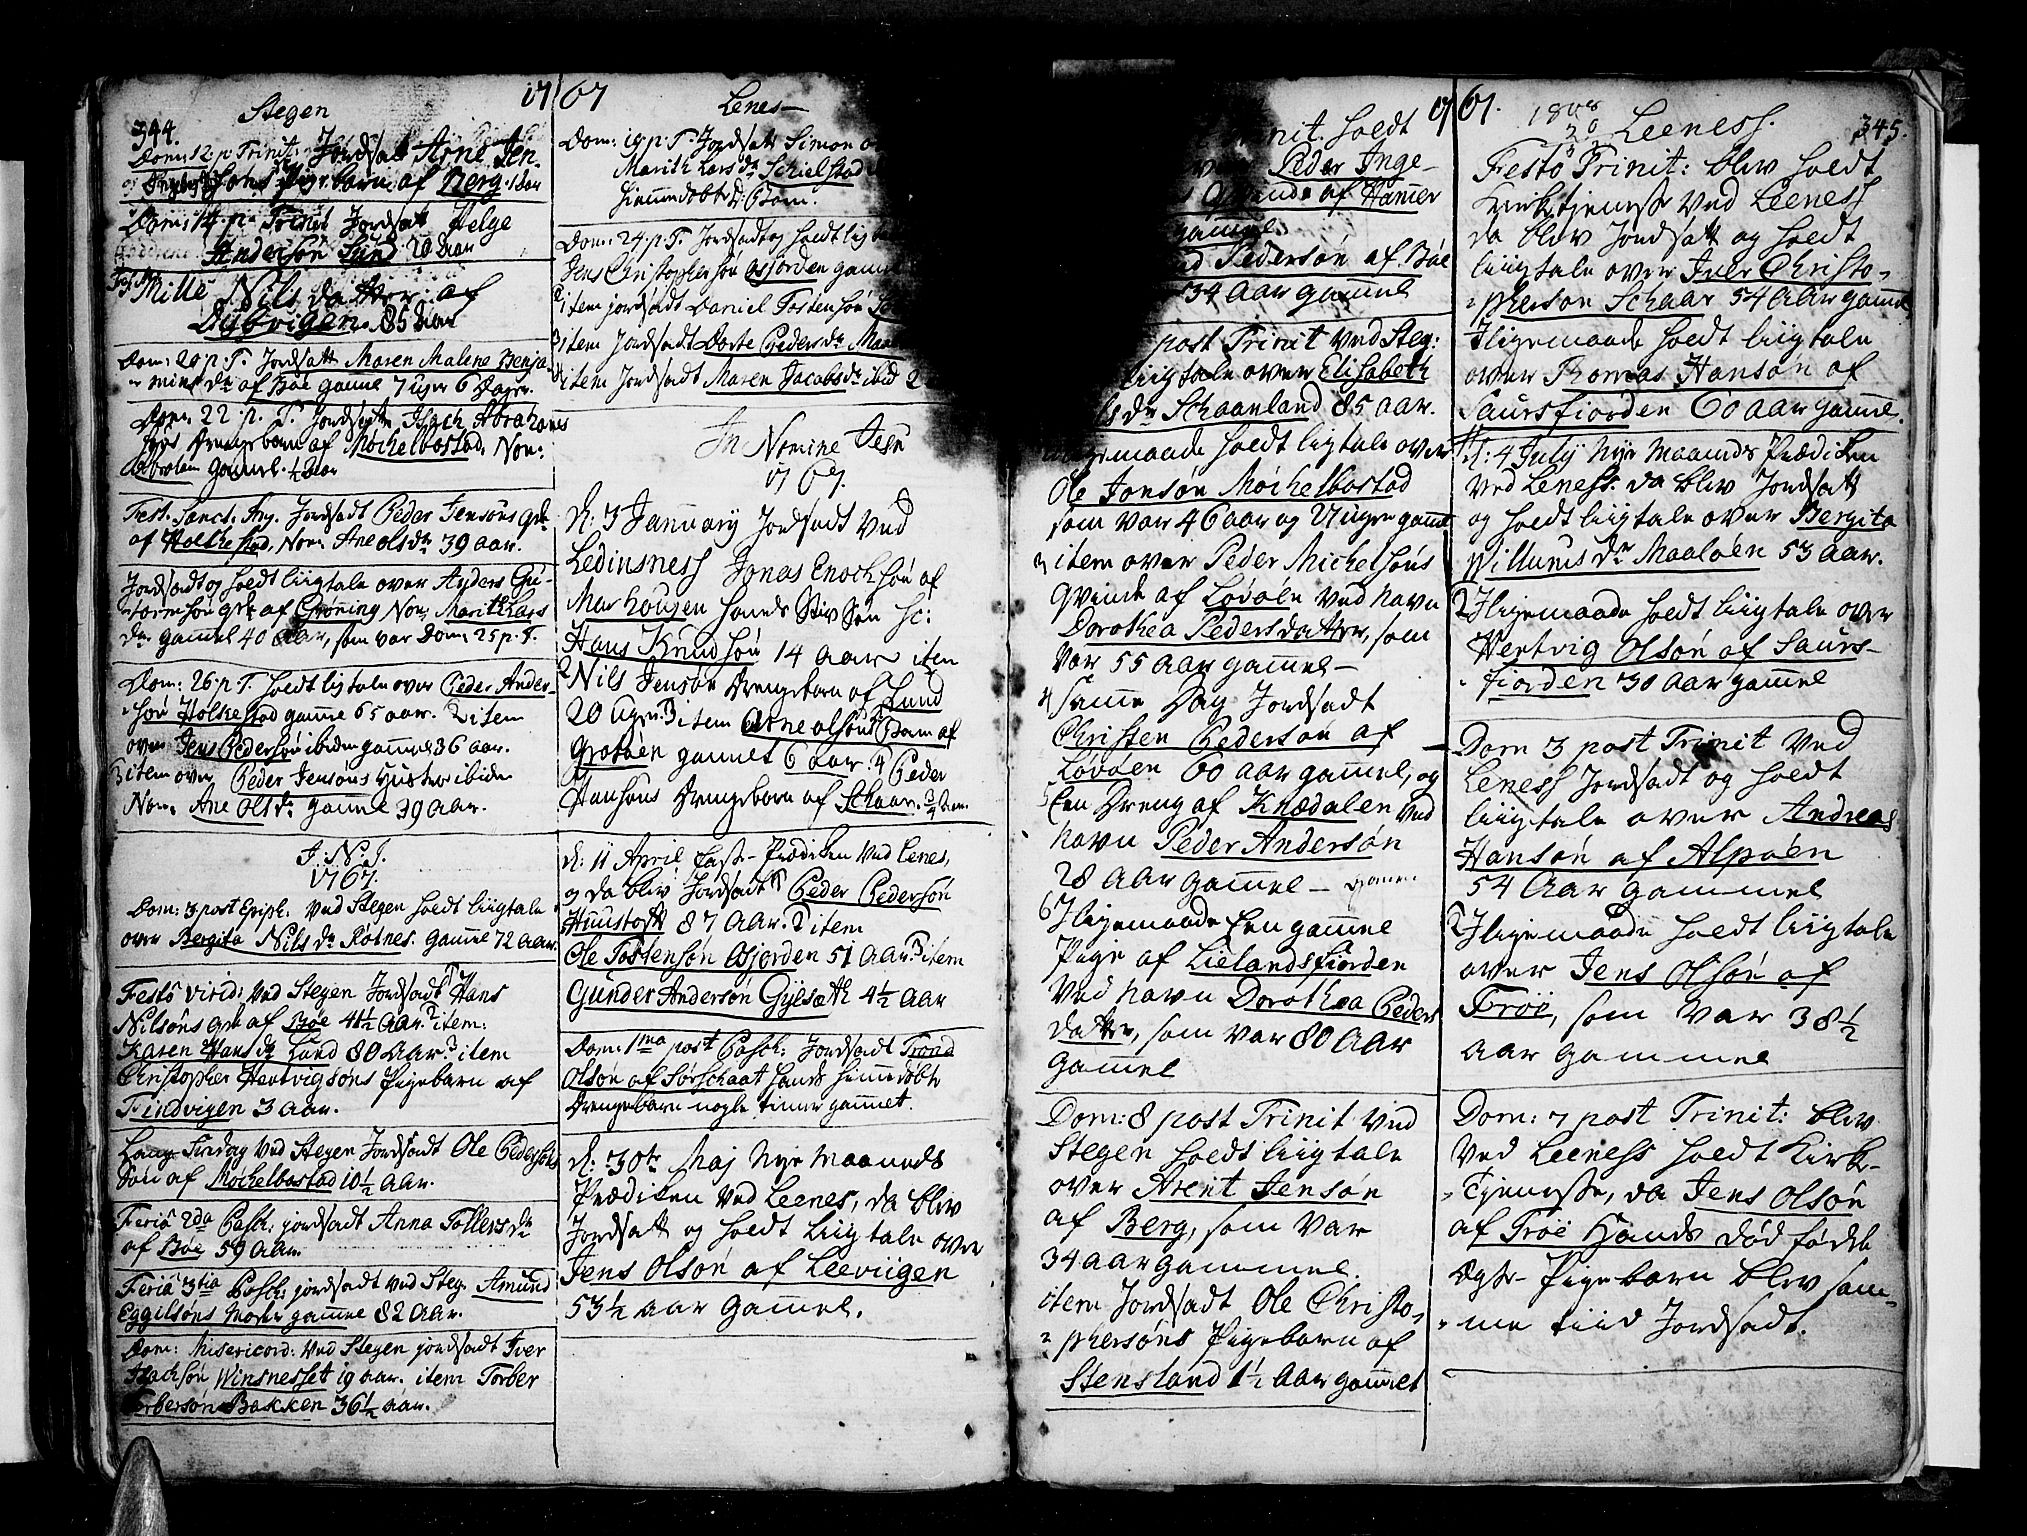 344.
Stegen
17
Dom: 12. p. Trinit: Jordsatt Arne Jen-
sons Pigebarn af Berg. 1 Aar
Dom: 14. p. Trinit Jordsatt Helge
Andersön Lund 20 Aar
Mille Nils datter af
Dybvigen. 85 Aar
Dom: 20. p. T. Jordsatt Maren Malene Benja-
mins dr af Böe gamle 7 uger 6 Dage.
Dom. 22. p. T. Jordsatt Isach Abrahams
Drengebarn af Möchelbostad, Nom:
Abraham gammel. ½ Aar
Fest. Sanct. Jordsadt Peder Jensöns qv:
af Holkestad, Nom: Ane ols dr 39 aar.
Jordsadt og holdt liigtale over Anders Gu-
tormsön qv: af Gröning Nom: Marith Lars
dr gamel 40 Aar, som var Dom: 25 p. T.
Dom: 26. p. T. holdt ligtale over Peder Ander-
sön Holkestad gamle 65 aar. 2 item
over Jens Pedersön ibidem gamle 36 aar.
3 item over Peder Jensöns Hustru ibide
Nom. Ane Ols dr gamle 39 Aar.
J. N. J.
1767.
Dom: 3 post Epiph. ved Stegen holdt liigtale
over Bergita Nils dr Rötnes. gamle 72 Aar.
Festö virid: ved Stegen Jordsadt Hans
Nilsöns qv: af Böe 41½ Aar. 2 item:
Karen Hans dr Lund 80 Aar. 3 item
Christopher Hertvigsöns Pigebarn af
Findvigen 3 Aar.
Lang Fredag ved Stegen Jordsadt Ole Pedersöns
Sön af Möchelbostad 10½ Aar.
Feriâ 2da Pasch: jordsadt Anna Tollers dr
af Böe 59 Aar.
Feriâ 3tia Pasch: jordsadt ved Steg. Amund
Eggilsöns Moder gamle 82 Aar.
Dom: Misericord: ved Stegen jordsadt Iver
Isachsön Winsnesset 19 aar. item Torber
Torbersön Bakken 36½ aar.
67
Lenes
Dom: 19. p. T. Jordsatt Simon
Marith Lars dr Schielstad
hiemmedöbte Barn.
Dom: 24. p. T. Jordsadt og holdt lig
Jens Christophersön Osjorden gamle
2 item jordsadt Daniel Tostensön
3 item Jordsadt Dorte Peders dr
item Jordsadt Maren Jacobs dr ibid
In Nomine Jesu
1767.
d: 3 January Jordsadt ved
Ledinsness Jonas Enochsön af
Marhougen hands Stiv Sön hc:
Hans Knudsön 14 Aar item
2 Nils Jensön Drengebarn af Lund
20 Ugr. 3 item Arne olsöns Barn af
Grotöen gammel 6 aar. 4 Peder
Hansöns Drengebarn af Schaar. ¾ Aar.
d: 11 April faste-Prædiken ved Lenes,
og da blev Jordsadt Peder Pedersön
Huustoft 87 Aar. 2 item
Ole Tostensön Osjorden 51 Aar. 3 item
Gunder Andersön Gylseth 4½ Aar
Dom: 1ma post Pasch: Jordsadt Trond
Olsön af Sörschaat hands hiemmedöbte
Drengebarn nogle timer gammel.
d: 30te Maj Nye Maaneds
Prædiken ved Leenes, da blev
Jordsatt og holdt Liigtale over
Jens Olsön af Leeviigen
53½ aar gammel.
17
Trinit. holdt
over Peder Inge-
Qvinde af Hamer
gammel.
Pedersön af Böe
34 Aar gammel
post Trinit ved Steg:
liigtale over Elisabeth
dr Schaanland 85 aar.
Iligemaade holdt liigtale over
Ole Jonsön Möchelbostad
som var 46 aar og 11 ugr gamel
3 item over Peder Michelsöns
Qvinde af Lövöen ved navn
Dorothea Pedersdatter, som
var 55 Aar gammel-
4 Samme Dag Jordsadt
Christen Pedersön af
Lövöen 60 aar gammel, og
5 Een Dreng af Knædalen ved
navn Peder Andersön
28 Aar gammel-
6 Iligemaade Een gamle
Pige af Lielandsfiorden
ved navn Dorothea Peders
datter, som var 80 Aar
gammel
Dom: 8 post Trinit ved
Stegen holdt liigtale
over Arent Jensön
af Berg, som var
34 aar gammel.
item Jordsadt Ole Christo-
phersöns Pigebarn af
Stensland 1½ Aar gammel
67.
Leeness.
345.
Festo Trinit: blev holdt
Kirketjeneste ved Leeness
da blev Jordsatt og holdt
liigtale over Iver Christo-
phersön Schaar 54 Aar gammel
Iligemaade holdt liigtale
over Thomas Hansön af
Saursfiorden 60 aar gamle.
d: 4 July Nye Maaneds Prædiken
ved Leness. da blev Jordsatt
og holdt liigtale over Bergita
Willums dr Maalöen 53 aar.
2 Iligemaade holdt liigtale over
Hertvig Olsön af Saurs-
fiorden 30 Aar gammel
Dom 3 post Trinit ved
Leness Jordsadt og holdt
liigtale over Andreas
Hansön af Alpöen
54 Aar gammel
2 Iligemaade holdt liigtale
over Jens Olsön af
Tröe, som var 38½
aar gammel
Dom: 7 post Trinit: blev
ved Leeness holdt Kirke-
Tjeneste, da Jens Olsön
af Tröe Hands död födde
Ægte- Pigebarn blev sam-
me tiid Jordsadt.